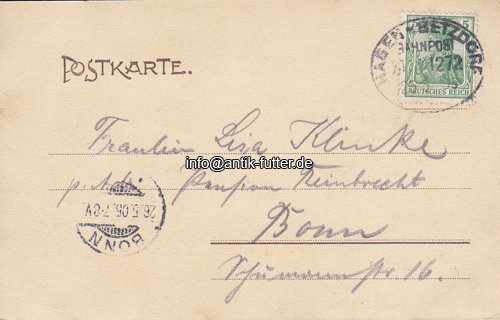 POSTKARTE.
HAGEN - BETZDORF
BAHNPOST
1272
5
DEUTSCHES REICH
Fräulein Lisa Klinke
info@antik-futter.de
p. Adr. Pension Reinbrecht
Bonn
Schumannstr. 16.
26.5.05.7-8V.
BONN